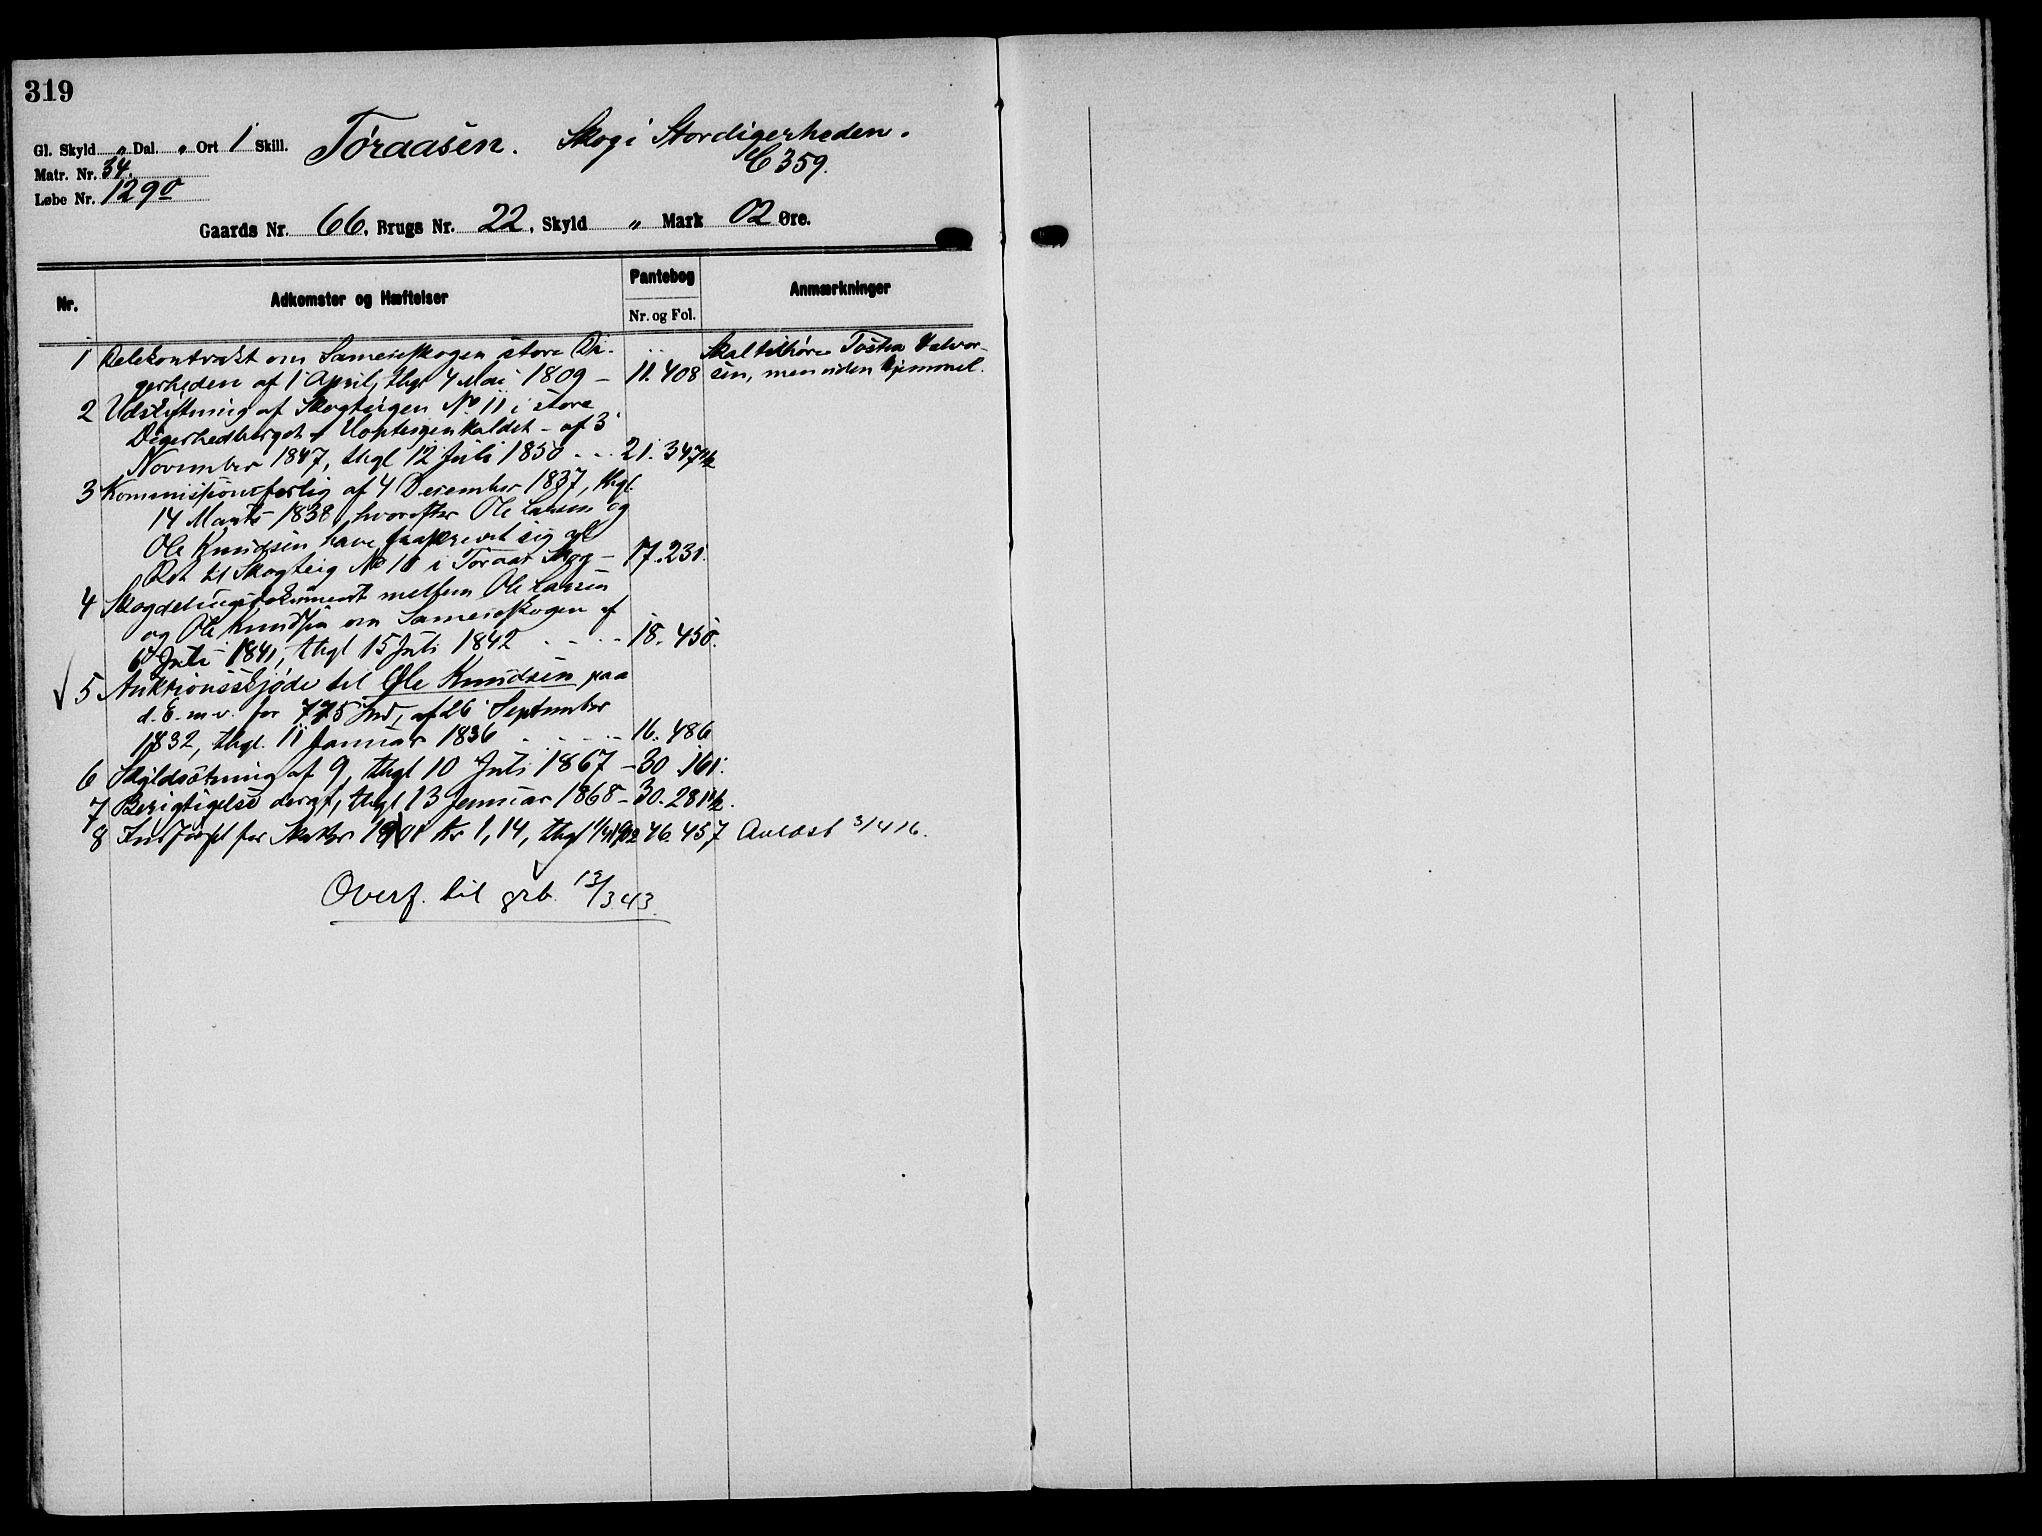 319
Gl. Skyld „ Dal. „ Ort 1 Skill. Töraasen. Skog i Stordigerheden.
Matr. Nr. 34. 359.
Løbe Nr. 129
Gaards Nr. 66, Brugs Nr. 22, Skyld „ Mark 02 Øre.
Nr. Adkomster og Hæftelser Pantebog Nr. og Fol. Anmærkninger
1 Delekontrakt om Sameieskogen store Di- Skal tilhöre Tosten Halvor-
gerheden af 1 April, thgl 4 Mai 1809 – 11. 408 sen, men uden Hjemmel.
2 Udskiftning af Skogteigen No 11 i store
Digerhedberget – kaldet – af 3
November 1847, thgl 12 Juli 1850 - - - 21. 347
3 Kommissionsforlig af 4 December 1837, thgl.
14 Marts 1838, hvorefter Ole Larsen og
Ole Knudsen have fraskrevet sig al
Ret til Skogteig No 11 i Toraas Skog – 17. 231.
4 Skogdelingsdokument mellem Ole Larsen
og Ole Knudsen om Sameieskogen af
6 Juli 1841, thgl 15 Juli 1842 - - - - 18. 450.
5 Auktionsskjöde til Ole Knudsen paa
d. E. m. v. for 775 af 26 September
1832, thgl. 11 Januar 1836 - - - - 16. 486
6 Skyldsætning af 9, thgl 10 Juli 1867 – 30. 161.
7 Berigtigelse deraf, thgl 13 Januar 1868 – 30. 281
8 for Skatter 1901 Kr 1,14, thgl 1/4 1902 46. 457 Avlæst 3/4 16.
Overf. til grb. 13/3 43.